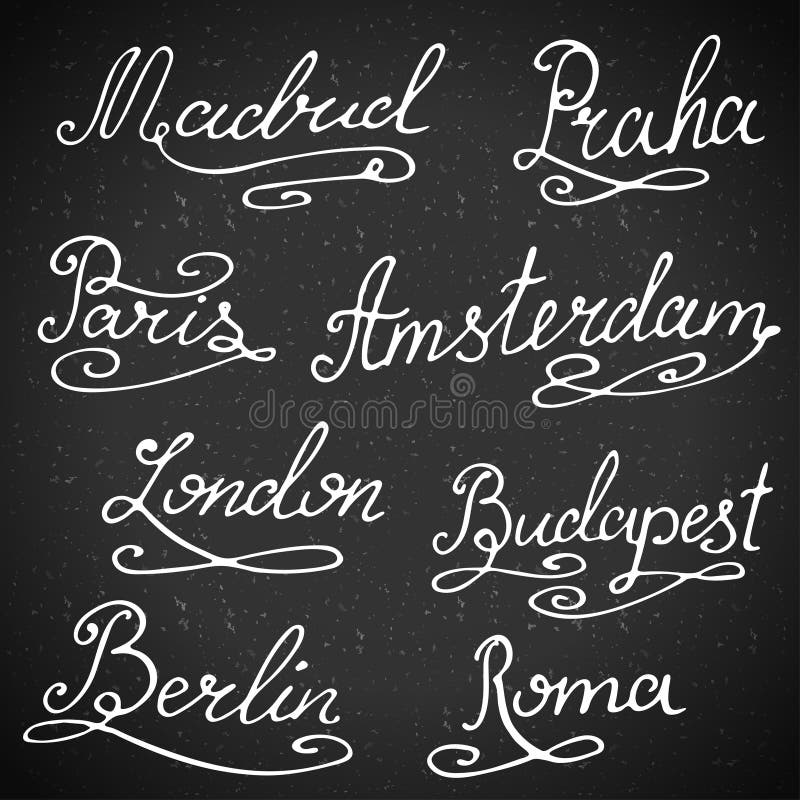 Madrid Praha
Paris Amsterdam
dreamstime
London Budapest
Berlin Roma